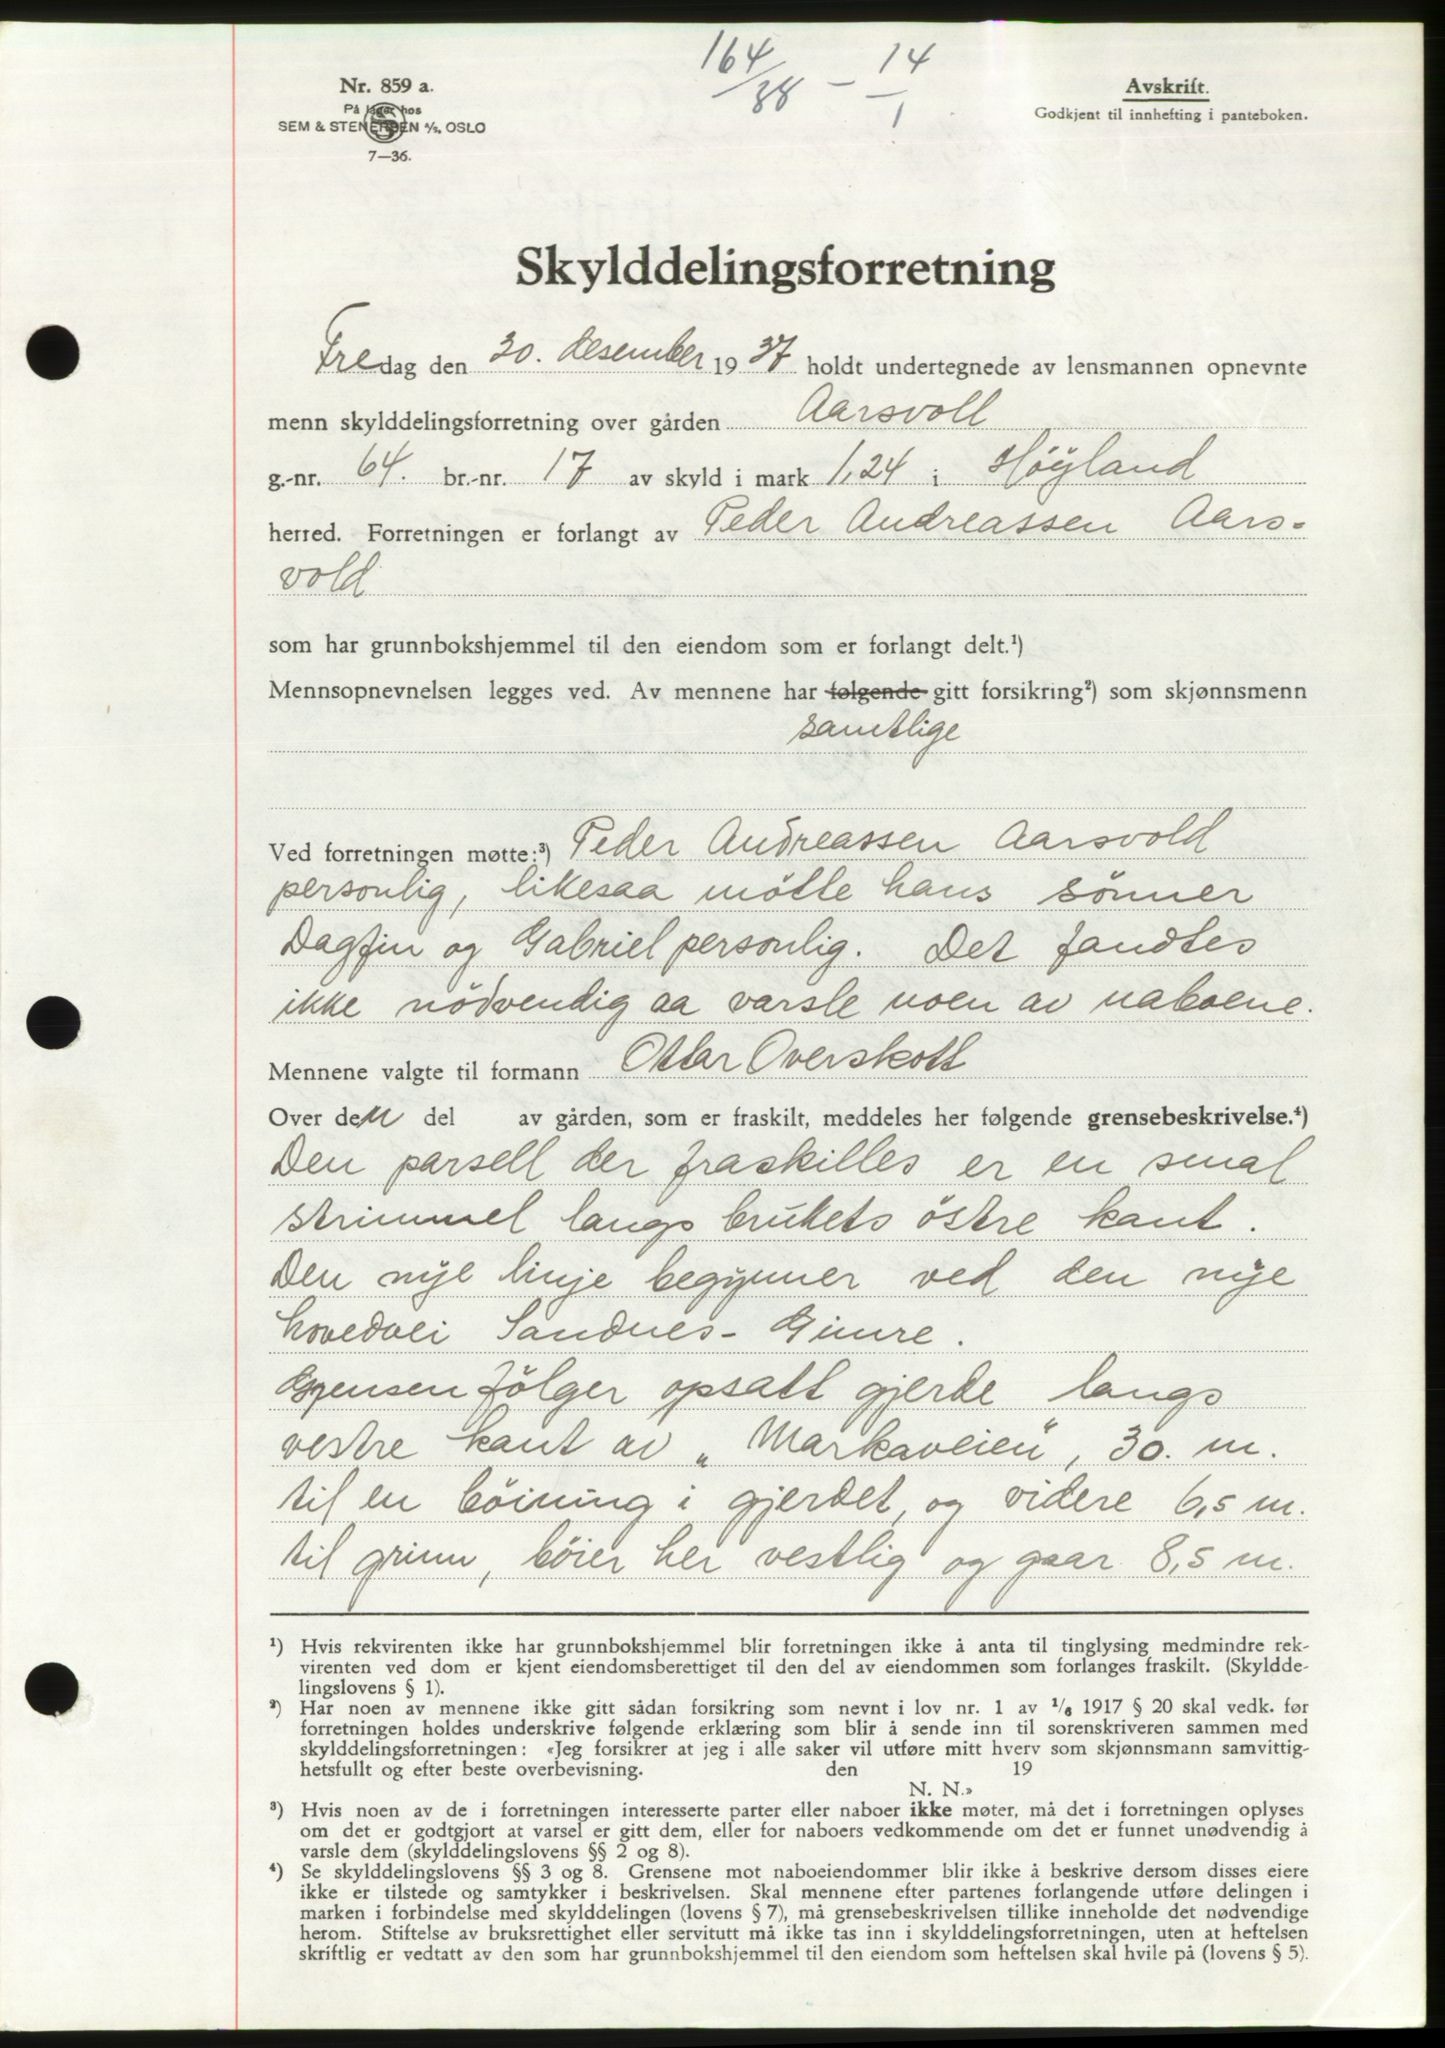 164/38 - 14/1
Nr. 859 a.
På lager hos
SEM & STENERSEN A/S, OSLO
7—36.
Avskrift.
Godkjent til innhefting i panteboken.
Skylddelingsforretning
Fredag den 30. desember 1937 holdt undertegnede av lensmannen opnevnte
menn skylddelingsforretning over gården Aarsvoll
g.-nr. 64. br.-nr. 17 av skyld i mark 1,24 i Höyland
herred. Forretningen er forlangt av Peder Andreassen Aars-
vold
som har grunnbokshjemmel til den eiendom som er forlangt delt.¹)
Mennsopnevnelsen legges ved. Av mennene har følgende gitt forsikring²) som skjønnsmenn
samtlige
Ved forretningen møtte:³) Peder Andreassen Aarsvold
personlig, likesaa mötte hans sönner
Dagfin og Gabriel personlig. Det fandtes
ikke nödvendig aa varsle noen av naboene.
Mennene valgte til formann Ottar Overskott
Over den del av gården, som er fraskilt, meddeles her følgende grensebeskrivelse.⁴)
Den parsell der fraskilles er en smal
strimmel langs brukets östre kant.
Den nye linje begynner ved den nye
hovedvei Sandnes - Gimre.
Grensen fölger opsatt gjerde langs
vestre kant av „Markaveien", 30. m.
til en böining i gjerdet, og videre 6,5 m.
til grinn, böier her vestlig og gaar 8,5 m.
¹) Hvis rekvirenten ikke har grunnbokshjemmel blir forretningen ikke å anta til tinglysing medmindre rek-
virenten ved dom er kjent eiendomsberettiget til den del av eiendommen som forlanges fraskilt. (Skyldde-
lingslovens § 1).
²) Har noen av mennene ikke gitt sådan forsikring som nevnt i lov nr. 1 av ¹/₆ 1917 § 20 skal vedk. før
forretningen holdes underskrive følgende erklæring som blir å sende inn til sorenskriveren sammen med
skylddelingsforretningen: «Jeg forsikrer at jeg i alle saker vil utføre mitt hverv som skjønnsmann samvittig-
hetsfullt og efter beste overbevisning. den 19
N. N.»
³) Hvis noen av de i forretningen interesserte parter eller naboer ikke møter, må det i forretningen oplyses
om det er godtgjort at varsel er gitt dem, eller for naboers vedkommende om det er funnet unødvendig å
varsle dem (skylddelingslovens §§ 2 og 8).
⁴) Se skylddelingslovens §§ 3 og 8. Grensene mot naboeiendommer blir ikke å beskrive dersom disses eiere
ikke er tilstede og samtykker i beskrivelsen. Skal mennene efter partenes forlangende utføre delingen i
marken i forbindelse med skylddelingen (lovens § 7), må grensebeskrivelsen tillike inneholde det nødvendige
herom. Stiftelse av bruksrettighet eller servitutt må ikke tas inn i skylddelingsforretningen, uten at heftelsen
skriftlig er vedtatt av den som har grunnbokshjemmel til den eiendom som heftelsen skal hvile på (lovens § 5).